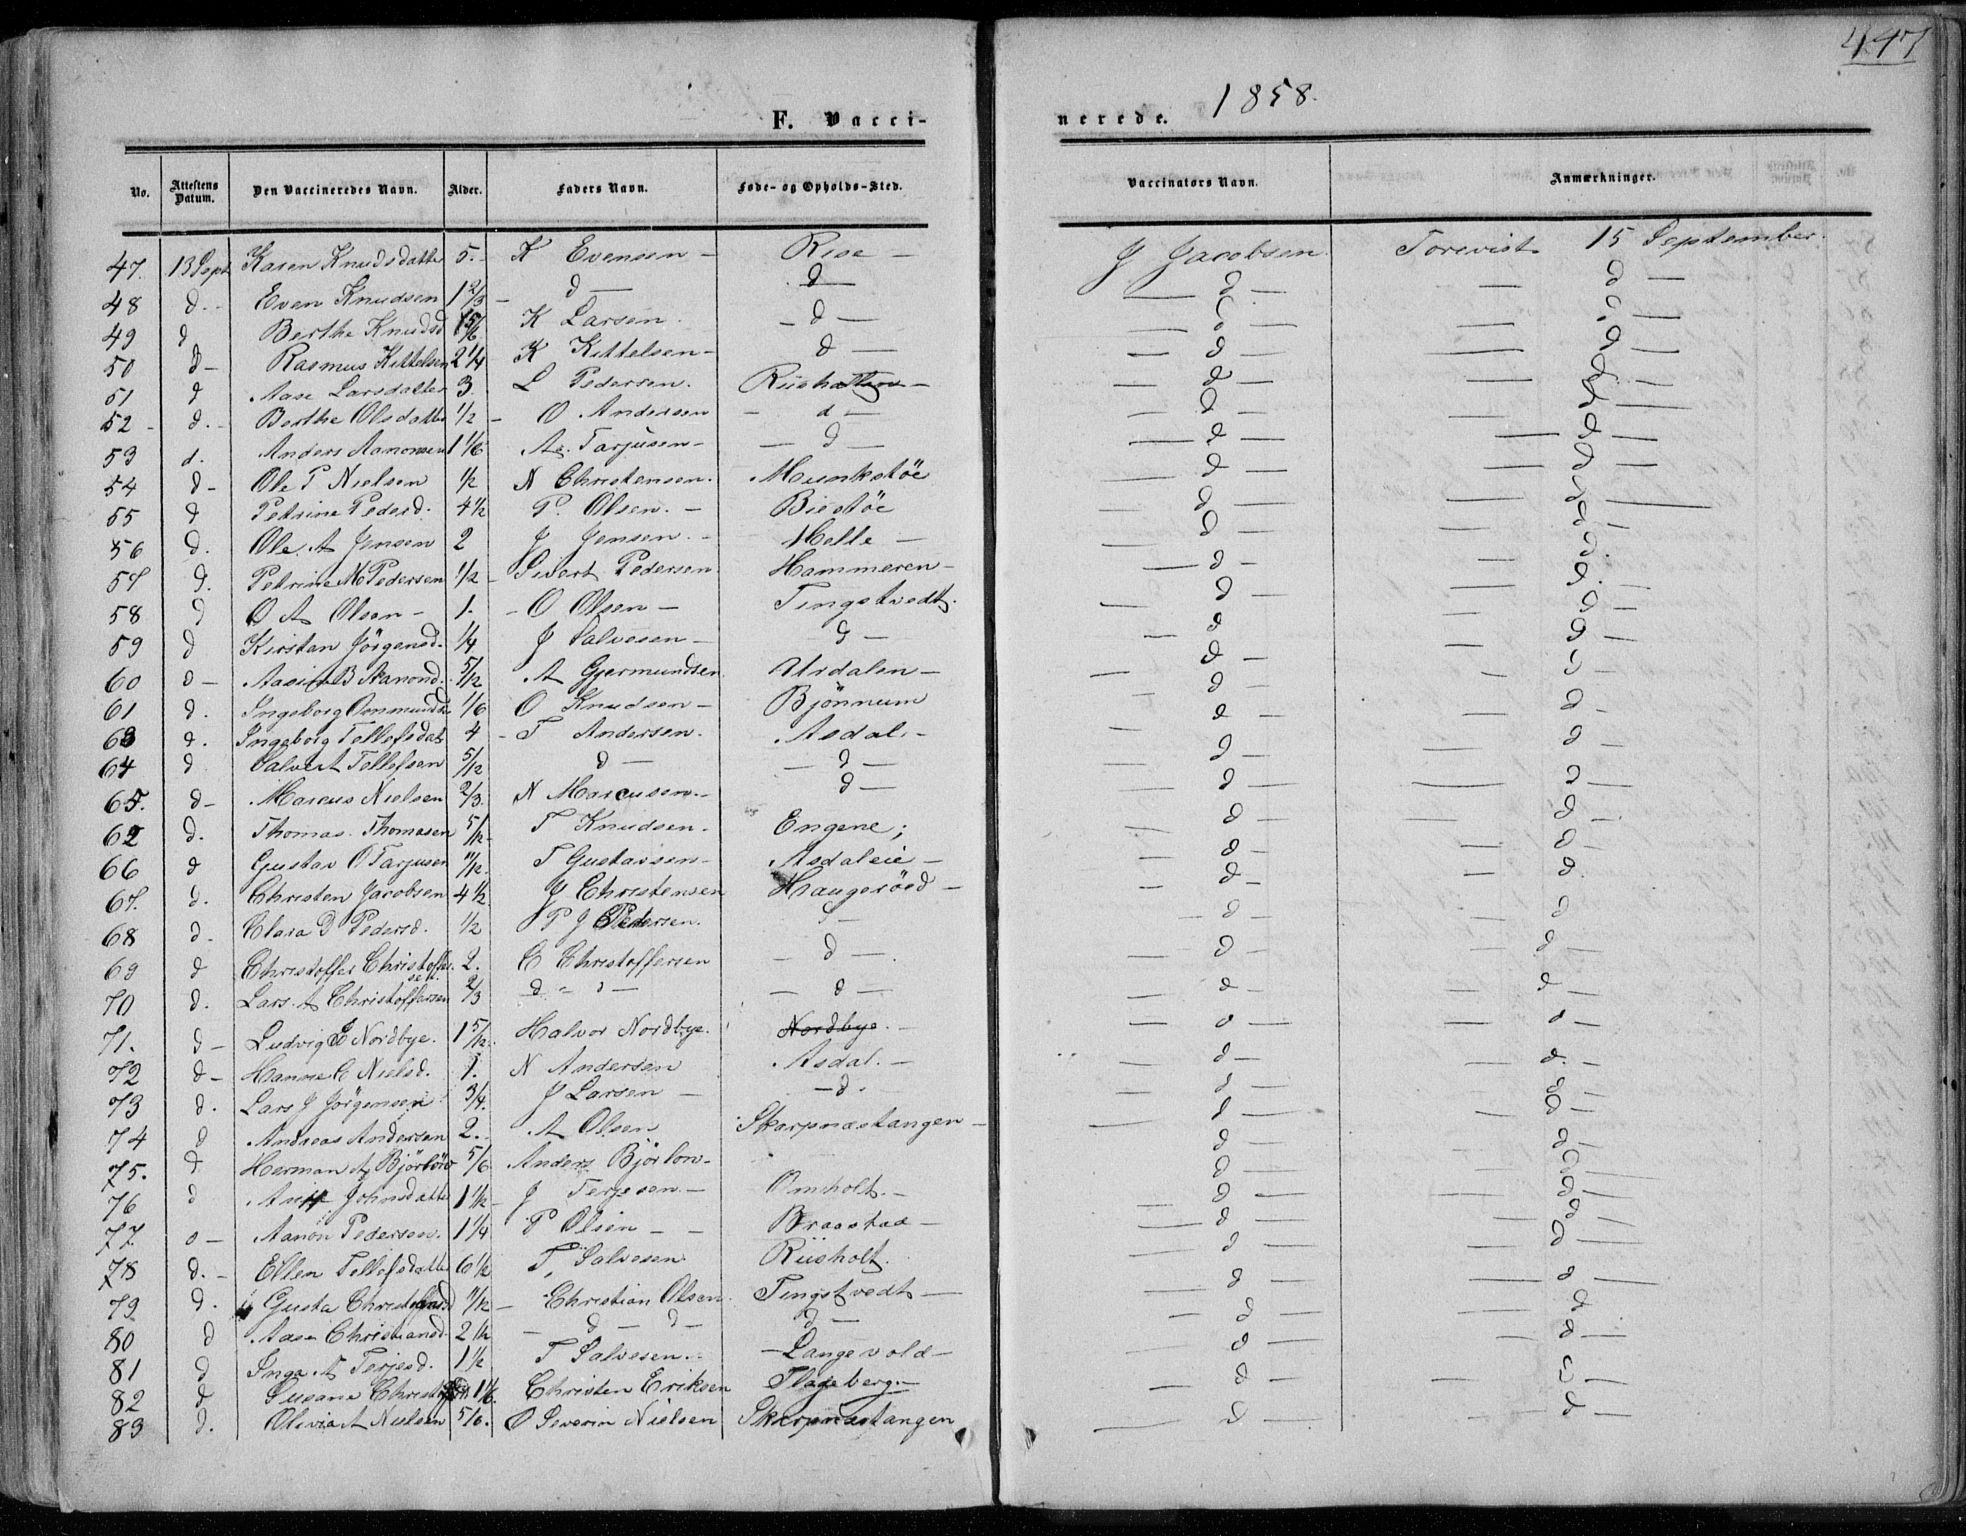 447
1858.
F. Vacci-
nerede.
No. Attestens Datum. Den Vaccineredes Navn. Alder. Faders Navn. Føde- og Opholds-Sted. Vaccinatørs Navn. Anmærkninger.
47. 13 Sept Karen Knudsdatte 5. K Evensen - Rise - J Jacobsen Forevist 15 September.
48 d. Even Knudsen 1 2/3 - d - d - d - d -
49 d Berthe Knudsd 1 5/6 K Larsen. - d - - d - - d -
50 d - Rasmus Kittelsen 2 1/4 K Kittelsen - d - - d - - d -
51 d Aase Larsdatter 3. L Pedersen. - d - - d -
52 - d. - Berthe Olsdatte 1/2 - O Andersen - d - - d - - d -
53 d. Anders Aanonsen 1 1/6 Aa. Tarjusen - - d - - d - - d -
54 d - Ole P Nielsen 1/2 N Christensen. Munkstöe - d - - d -
55 d Petrine Pedersd. 4 1/2 P. Olsen. - Biestöe - d - - d -
56 d. Ole A Jensen 2 J Jensen. - Helle - - d - - d -
57 d. Petrine M Pedersen 1/2 - Sivert Pedersen Hammeren - - d - - d -
58 d O A Olsen - 1. - O Olsen - Tingstvedt. - d - - d -
59 d Kirstan Jörgensd. 1/4 J Salvesen - d - - d - - d -
60 d - B Aanond. 5/12 A Gjermundsen Urdalen - - d - - d -
61 d. Ingeborg 1/6 O Knudsen - Bjönnum - d - - d -
63 d. Ingeborg Tellefsdat 4 - T Andersen. Asdal - - d - - d -
64 d Salve A Tellefsen 5/12 d - - d - - d - - d -
65. d - Marcus Nielsen 2/3. N Marcusen. - d - - d - - d -
62 d. Thomas Thomasen 5/12 - T Knudsen. Engene; - d - - d -
66 d Gustav O Tarjusen 11/12. T Gustavsen - Asdaleie - - d - - d -
67. d. Christen Jacobsen 4 1/2 J Christensen Haugeröed - - d - - d.
68 d. Clara D Pedersd. 1/2 P J Pedersen. d - - d - - d
69 d Christoffer Christoffersen 2. C Christoffersen - d - - d - - d -
70 d. Lars A Christoffersen 2/3 d - d - - d - - d - - d -
71. d - Ludvig E Nordbye. 1 5/12. Halvor Nordbye. Nordbye. - - d - - d -
72 d - Hanne C Nielsd. 1. N Andersen Asdal. - - d - - d. -
73 d. Lars J Jörgensen 3/4. J Larsen - - d. - d - - d -
74 d Andreas Andersen 2. A Olsen Skarpnæstangen - - d - - d -
75. d Herman A 5/6 Anders Björlon - - d - - d -
76 d Johnsdatte 1 1/2 - J Terjesen. - Omholt. - - d - - d -
77. d - Aanon Pedersen. 1 1/4 P Olsen - - Braastad - - d - - d -
78 d. - Ellen Tellefsdatte 6 1/2 T. Salvesen Riisholt. - d - - d -
79 d. Gusta 11/12 - Christian Olsen. Tingstvedt - - d - - d -
80 d Aase Christiansd. 2 1/2 - d - d - d - - d - - d
81 d Inga A Terjesd. 1 1/2 T Salvesen. - - Langevold - - d - - d -
82 d Susane 1 1/6. Christen Eriksen Flageberg. - - d - - d -
83 d. Olivia A Nielsen 5/6. O Severin Nielsen Skarpnæstangen - d - - d -